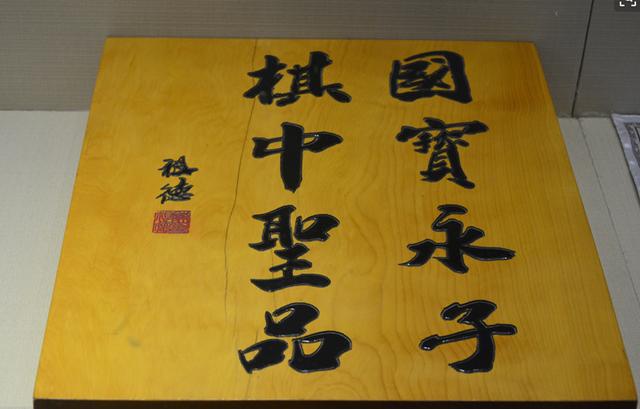 國寶永子
棋中聖品
祖德